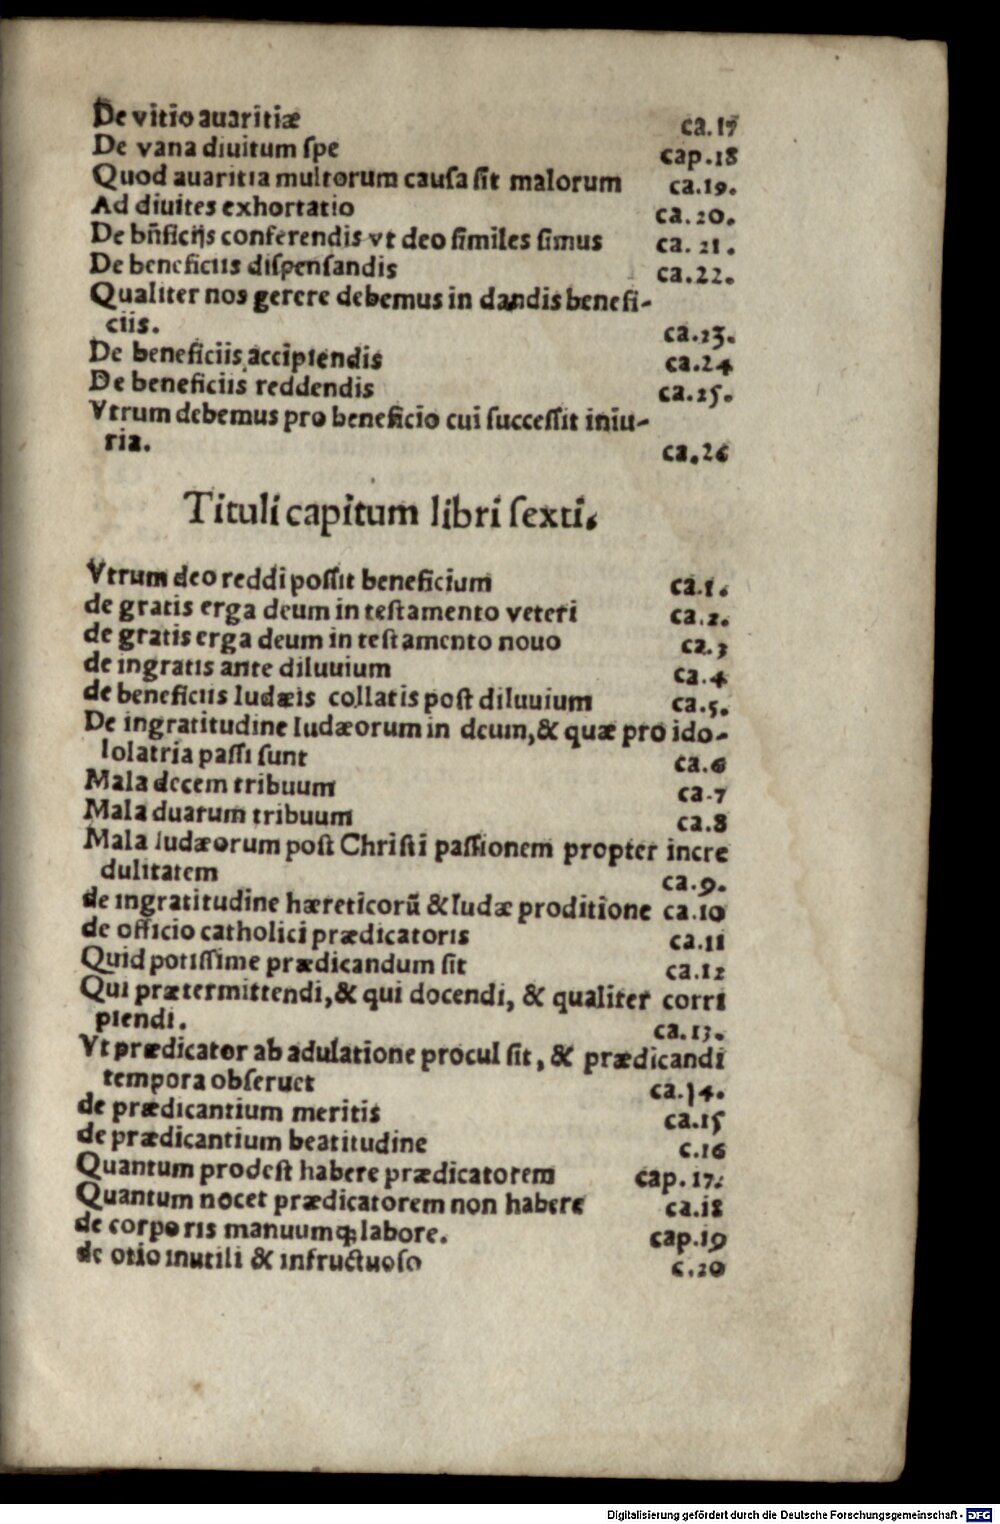 De vitio auaritiæ ca.17
De vana diuitum ſpe cap.18
Quod auaritia multorum cauſa ſit malorum ca.19.
Ad diuites exhortatio ca.20.
De bñficijs conferendis vt deo ſimiles ſimus ca. 21.
De beneficiis diſpenſandis ca.22.
Qualiter nos gerere debemus in dandis benefi-
ciis. ca.23.
De beneficiis accipiendis ca.24
De beneficiis reddendis ca.25.
Vtrum debemus pro beneficio cui ſucceſſit iniu-
ria. ca.26
Tituli capitum libri ſexti.
Vtrum deo reddi poſſit beneficium ca.1.
de gratis erga deum in teſtamento veteri ca.2.
de gratis erga deum in teſtamento nouo ca.3
de ingratis ante diluuium ca.4
de beneficiis Iudæis collatis poſt diluuium ca.5.
De ingratitudine Iudæorum in deum,& quæ pro ido-
lolatria paſſi ſunt ca.6
Mala decem tribuum ca.7
Mala duarum tribuum ca.8
Mala Iudæorum poſt Chriſti paſſionem propter incre
dulitatem ca.9.
de ingratitudine hæreticorũ & Iudæ proditione ca.10
de officio catholici prædicatoris ca.11
Quid potiſſime prædicandum ſit ca.12
Qui prætermittendi,& qui docendi, & qualiter corri
piendi. ca.13.
Vt prædicator ab adulatione procul ſit, & prædicandi
tempora obſeruet ca.14.
de prædicantium meritis ca.15
de prædicantium beatitudine c.16
Quantum prodeſt habere prædicatorem cap.17.
Quantum nocet prædicatorem non habere ca.18
de corporis manuumꝗ labore. cap.19
de otio inutili & infructuoſo c.20
Digitalisierung gefördert durch die Deutsche Forschungsgemeinschaft - DFG